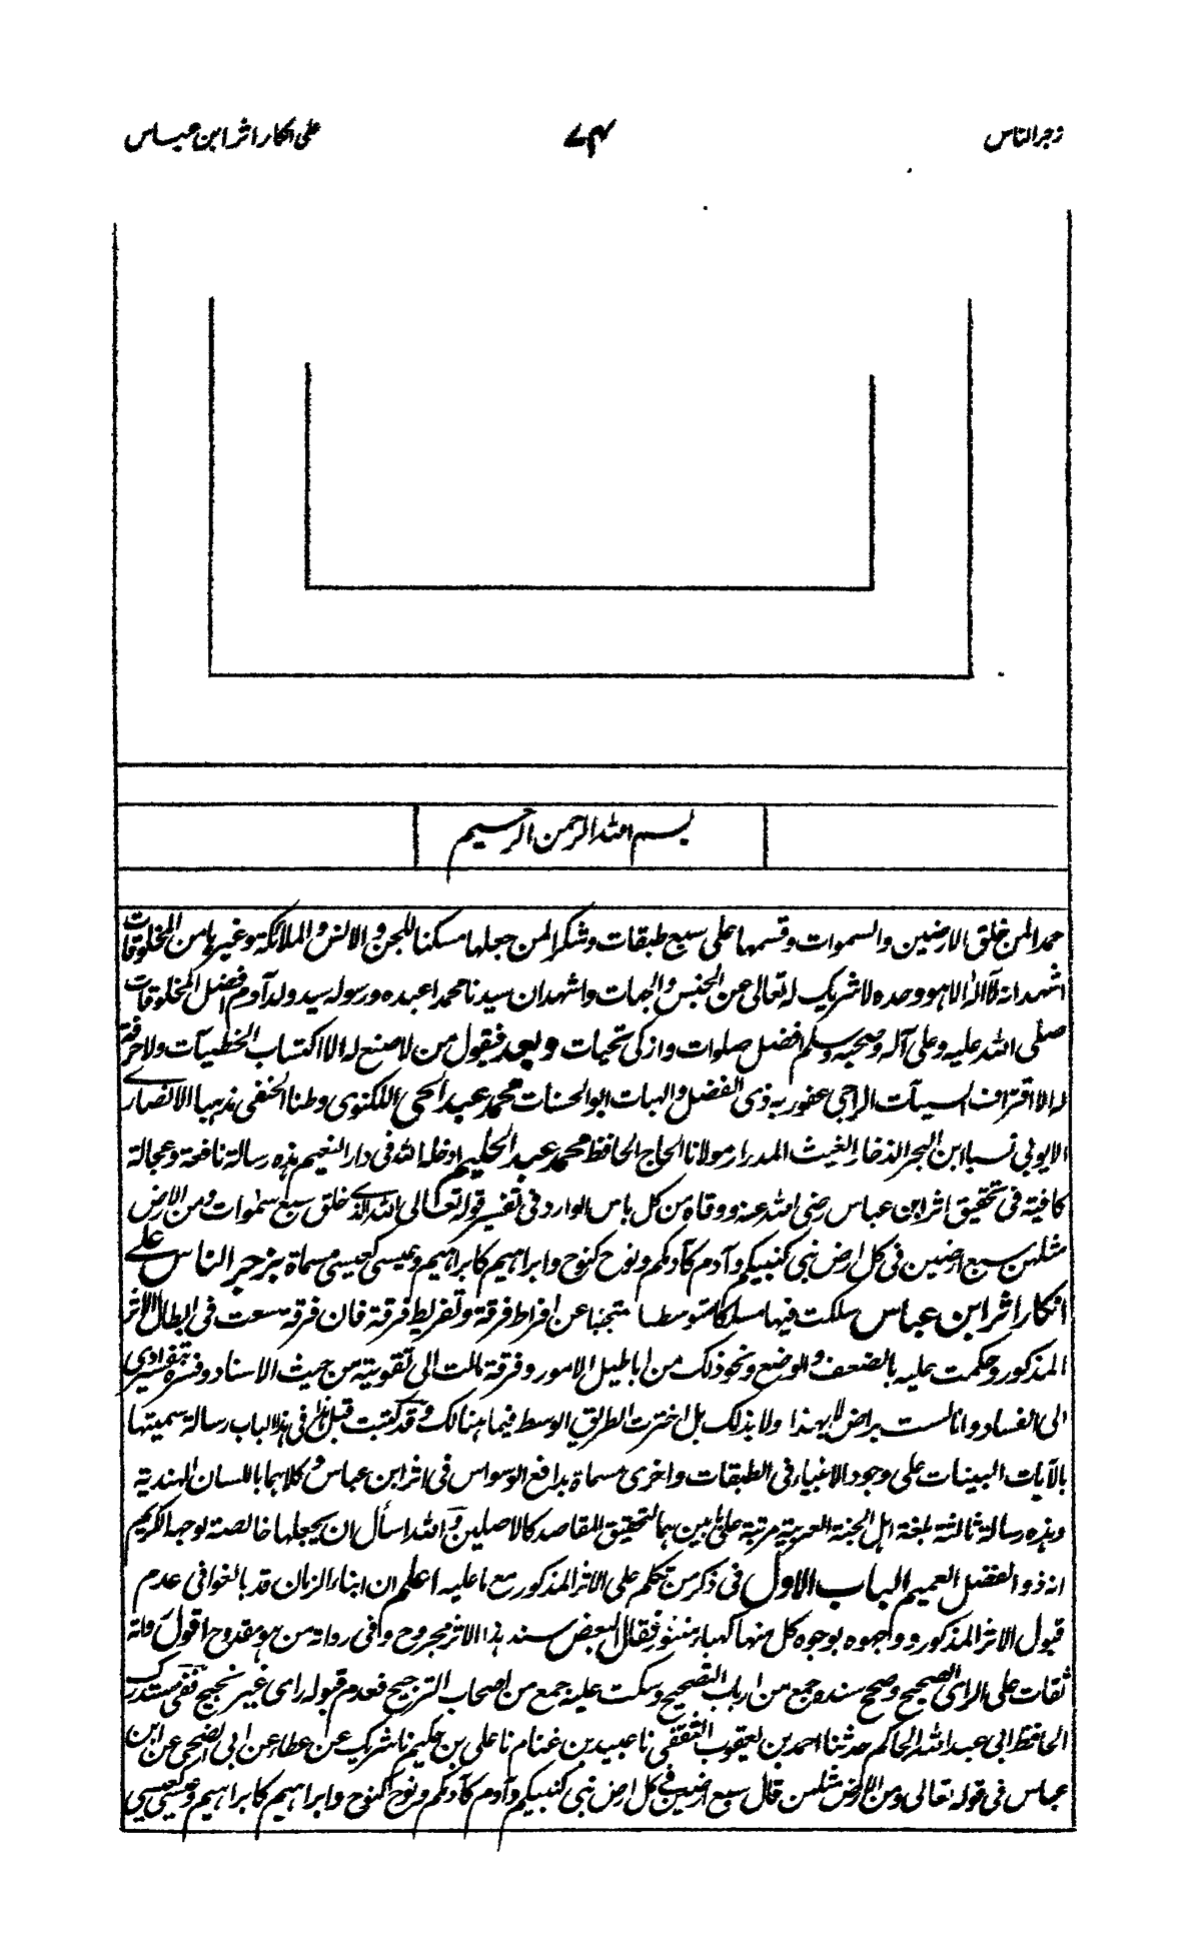 زجر الناس
٧٤
على انكار اثر ابن عباس
بسم الله الرحمن الرحيم
حمدا لمن خلق الارضين والسموات وقسمها على سبع طبقات وشكرا لمن جعلها مسكنا للجن والانس والملائكة وغيرها من المخلوقات
اشهد انه لا اله الا هو وحده لا شريك له تعالى عن الجنس والجهات واشهد ان سيدنا محمدا عبده ورسوله سيد ولد آدم افضل المخلوقات
صلى الله عليه وعلى آله وصحبه وسلم افضل صلوات وازكى تحيات وبعد فيقول من لا صنع له الا اكتساب الخطيآت ولا حرفة
له الا اقتراف السيآت الراجى عفو ربه ذى الفضل والهبات ابو الحسنات محمد عبد الحى اللكنوى وطنا الحنفى مذهبا الانصارى
الايوبى نسبا ابن البحر الذخار الغيث المدرار مولانا الحاج الحافظ محمد عبد الحليم ادخله الله فى دار النعيم هذه رسالة نافعة وعجالة
كافية فى تحقيق اثر ابن عباس رضى الله عنه ووقاه من كل باس الوارد فى تفسير قوله تعالى الله الذى خلق سبع سموات ومن الارض
مثلهن سبع ارضين فى كل ارض نبى كنبيكم وآدم كآدمكم ونوح كنوح وابراهيم كابراهيم وعيسى كعيسى مسماة بزجر الناس على
انكار اثر ابن عباس سلكت فيها مسلكا متوسطا متجنبا عن افراط فرقة وتفريط فرقة فان فرقة سعت فى ابطال الاثر
المذكور وحكمت عليه بالضعف والوضع ونحو ذلك من اباطيل الامور وفرقة مالت الى تقويته من حيث الاسناد وفسره بتفسير يؤدى
الى الفساد وانا لست براض لا بهذا ولا بذلك بل اخترت الطريق الوسط فيما هنالك وقد كتبت قبل هذا فى هذا الباب رسالة سميتها
بالآيات البينات على وجود الانبياء فى الطبقات واخرى مسماة بدافع الوسواس فى اثر ابن عباس وكلاهما باللسان الهندية
وهذه رسالة ثالثة بلغة اهل الجنة العربية مرتبة على بابين هما لتحقيق المقاصد كالاصلين والله اسأل ان يجعلها خالصة لوجهه الكريم
انه ذو الفضل العميم الباب الاول فى ذكر من تكلم على الاثر المذكور مع ما عليه اعلم ان ابناء الزمان قد بالغوا فى عدم
قبول الاثر المذكور ووجهوه بوجوه كل منها كهباء منثور فقال البعض سند هذا الاثر مجروح وفى رواته من هو مقدوح اقول رواته
ثقات على الراى الصحيح وصحح سنده جمع من ارباب التصحيح وسكت عليه جمع من اصحاب الترجيح فعدم قبوله راى غير نجيح ففى مستدرك
الحافظ ابى عبد الله الحاكم حدثنا احمد بن يعقوب الثقفى نا عبيد بن غنام نا على بن حكيم نا شريك عن عطاء عن ابى الضحى عن ابن
عباس فى قوله تعالى ومن الارض مثلهن قال سبع ارضين فى كل ارض نبى كنبيكم وآدم كآدمكم ونوح كنوح وابراهيم كابراهيم وعيسى كعيسى